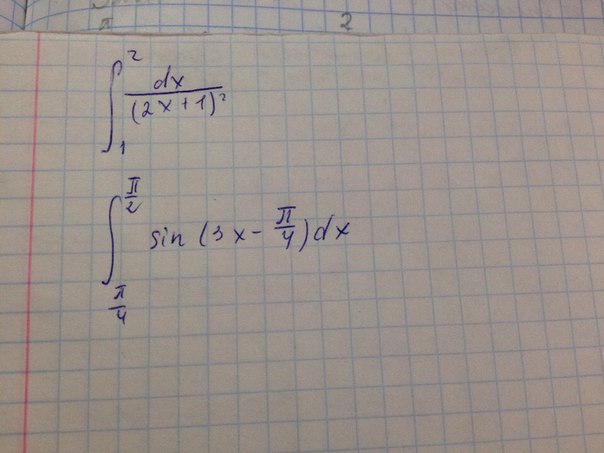 2
∫₁² dx/(2x+1)²
∫_{π/4}^{π/2} sin (3x - π/4) dx